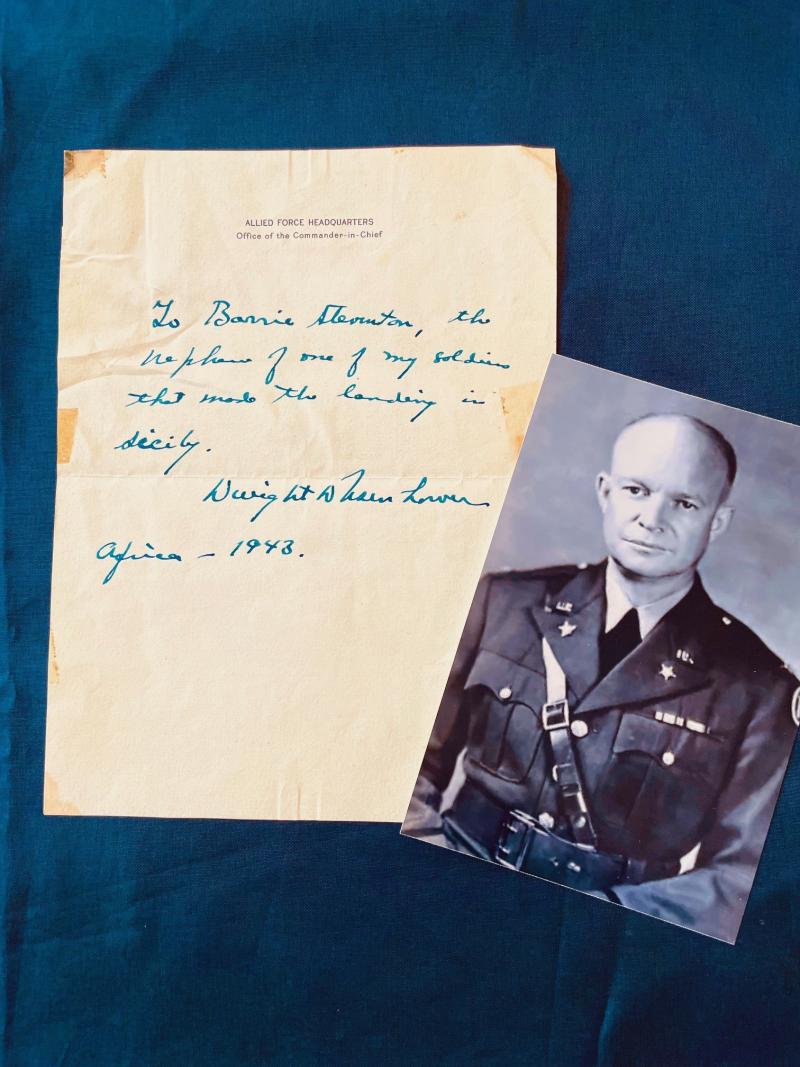 ALLIED FORCE HEADQUARTERS
Office of the Commander-in-Chief
To Barrie Staunton, the
nephew of one of my soldiers
that made the landing in
Sicily.
Dwight D Eisenhower
Africa – 1943.